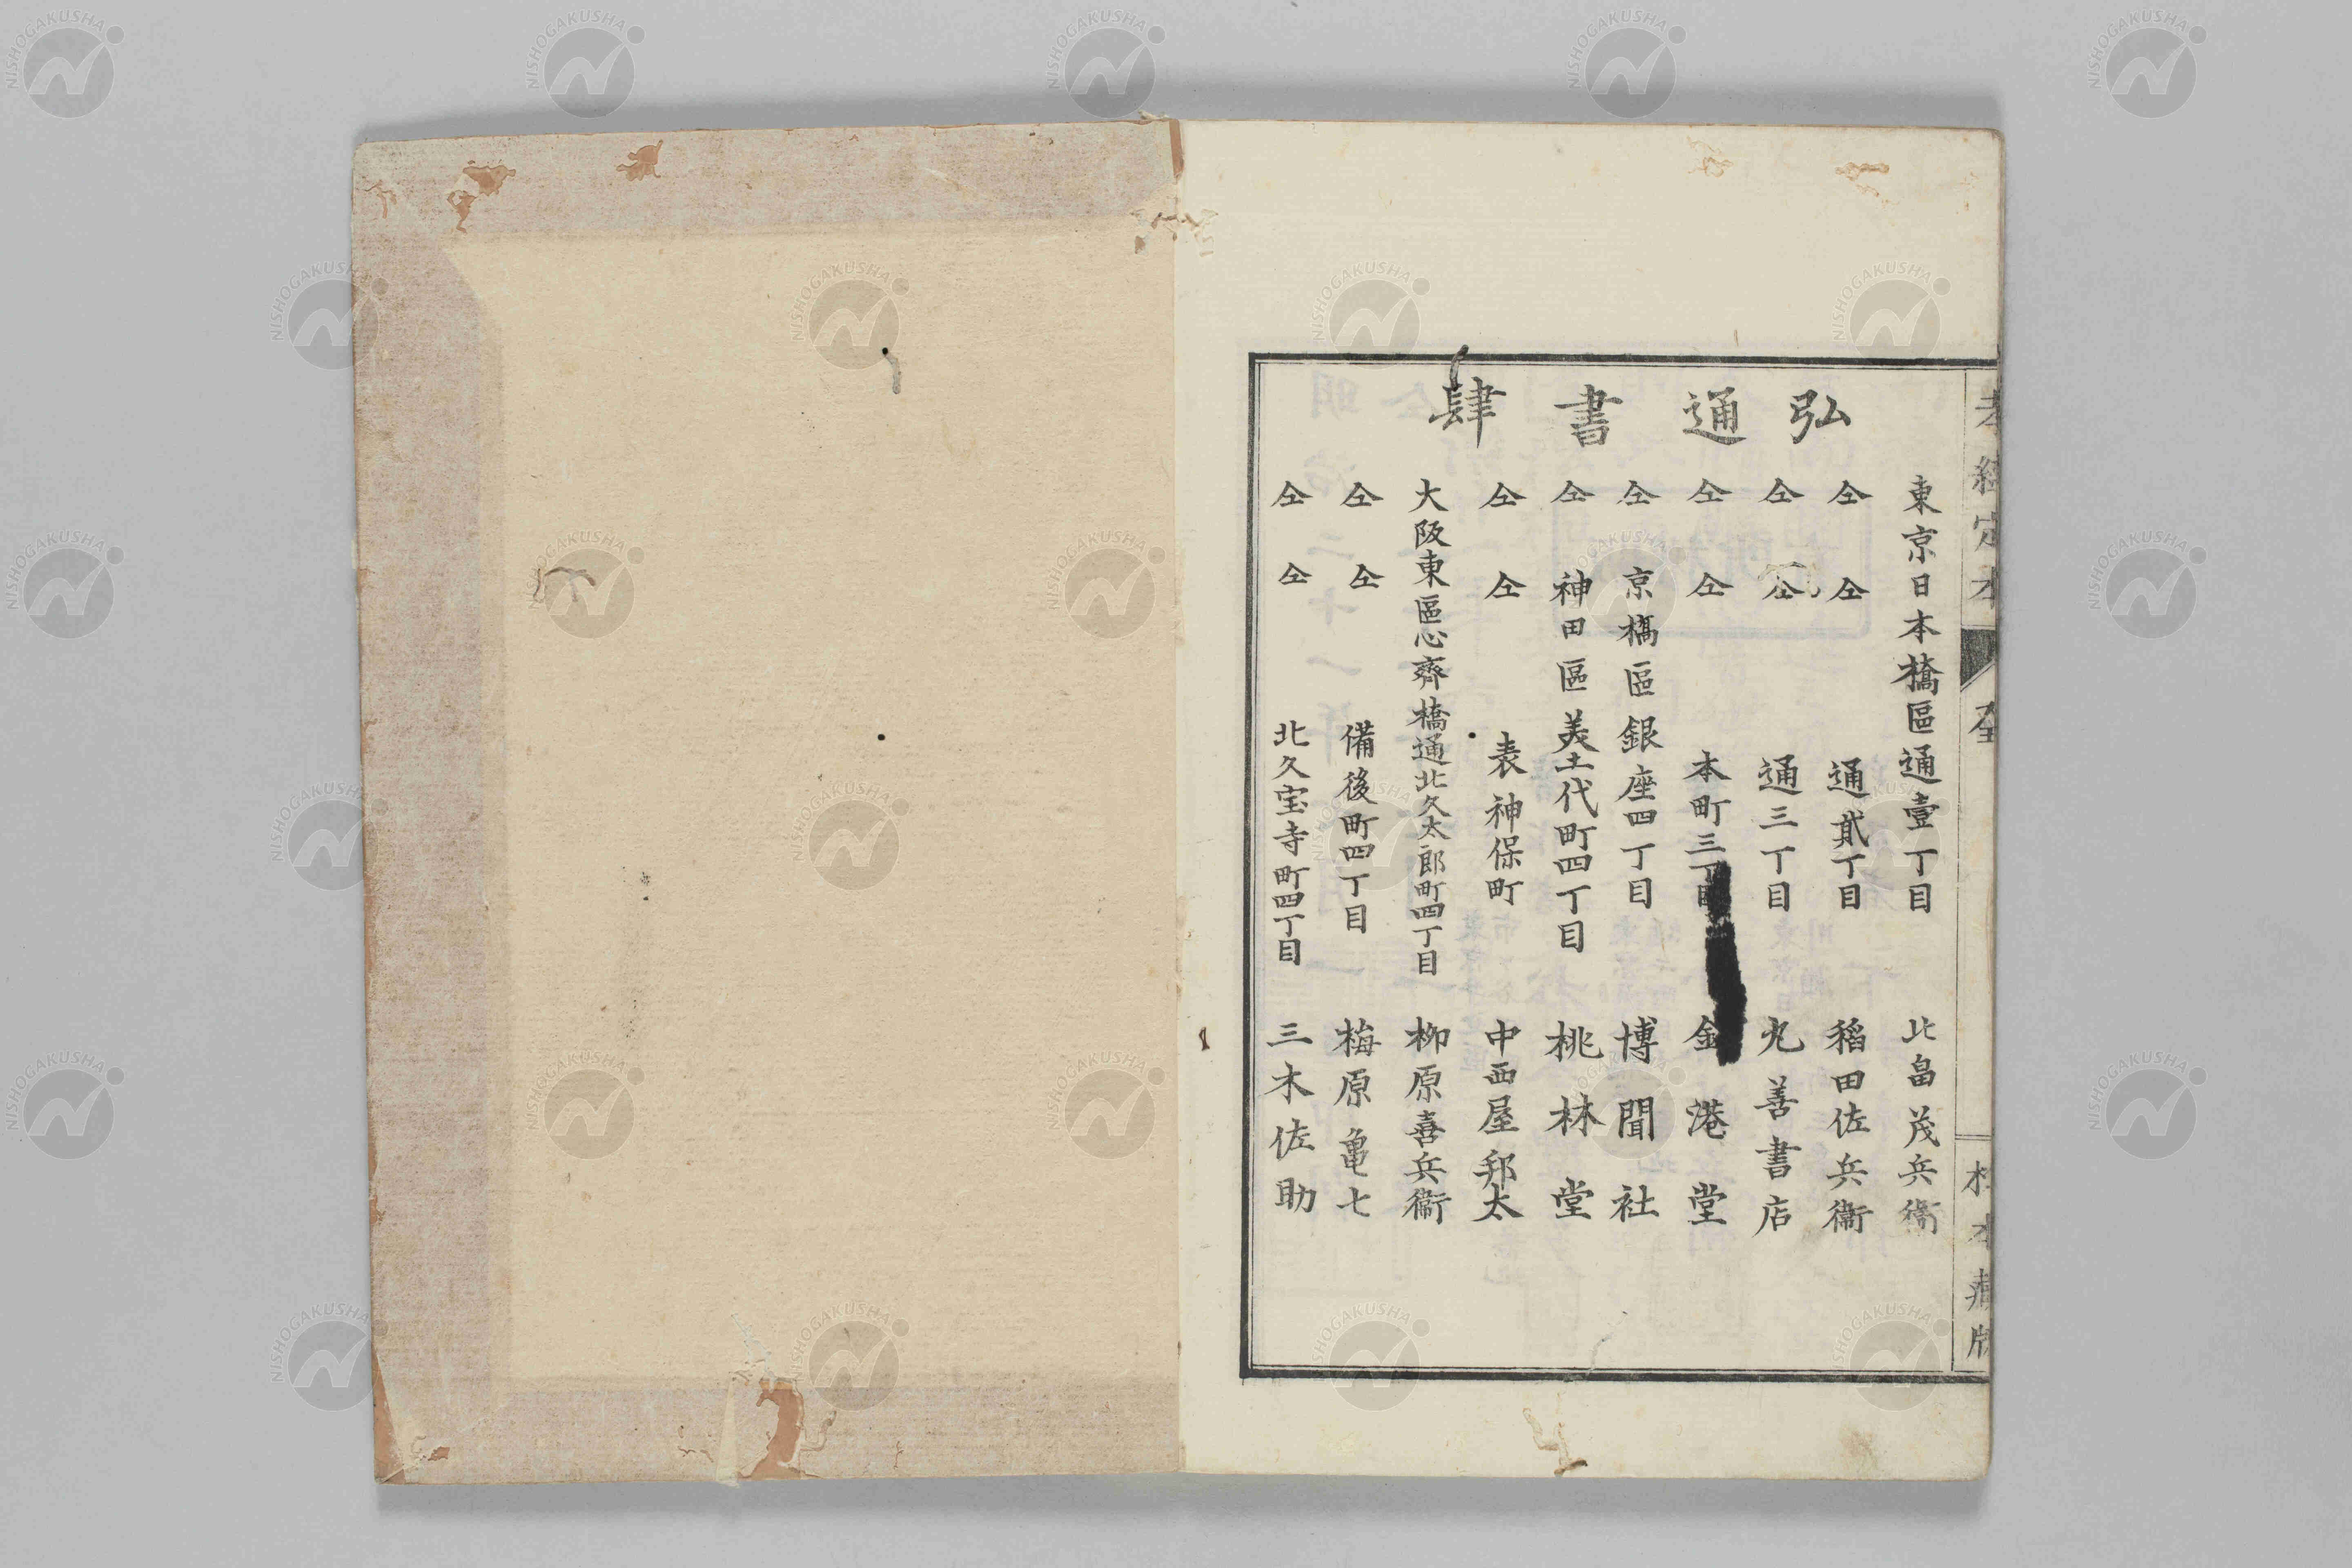 弘通書肆
東京日本橋區通壹丁目 北畠茂兵衞
仝 仝 通貳丁目 稻田佐兵衞
仝 仝 通三丁目 丸善書店
仝 仝 本町三丁目 金港堂
仝 京橋區銀座四丁目 博聞社
仝 神田區美土代町四丁目 桃林堂
仝 仝 表神保町 中西屋邦太
大阪東區心齊橋通北久太郎町四丁目 柳原喜兵衞
仝 仝 備後町四丁目 梅原亀七
仝 仝 北久宝寺町四丁目 三木佐助
NISHOGAKUSHA